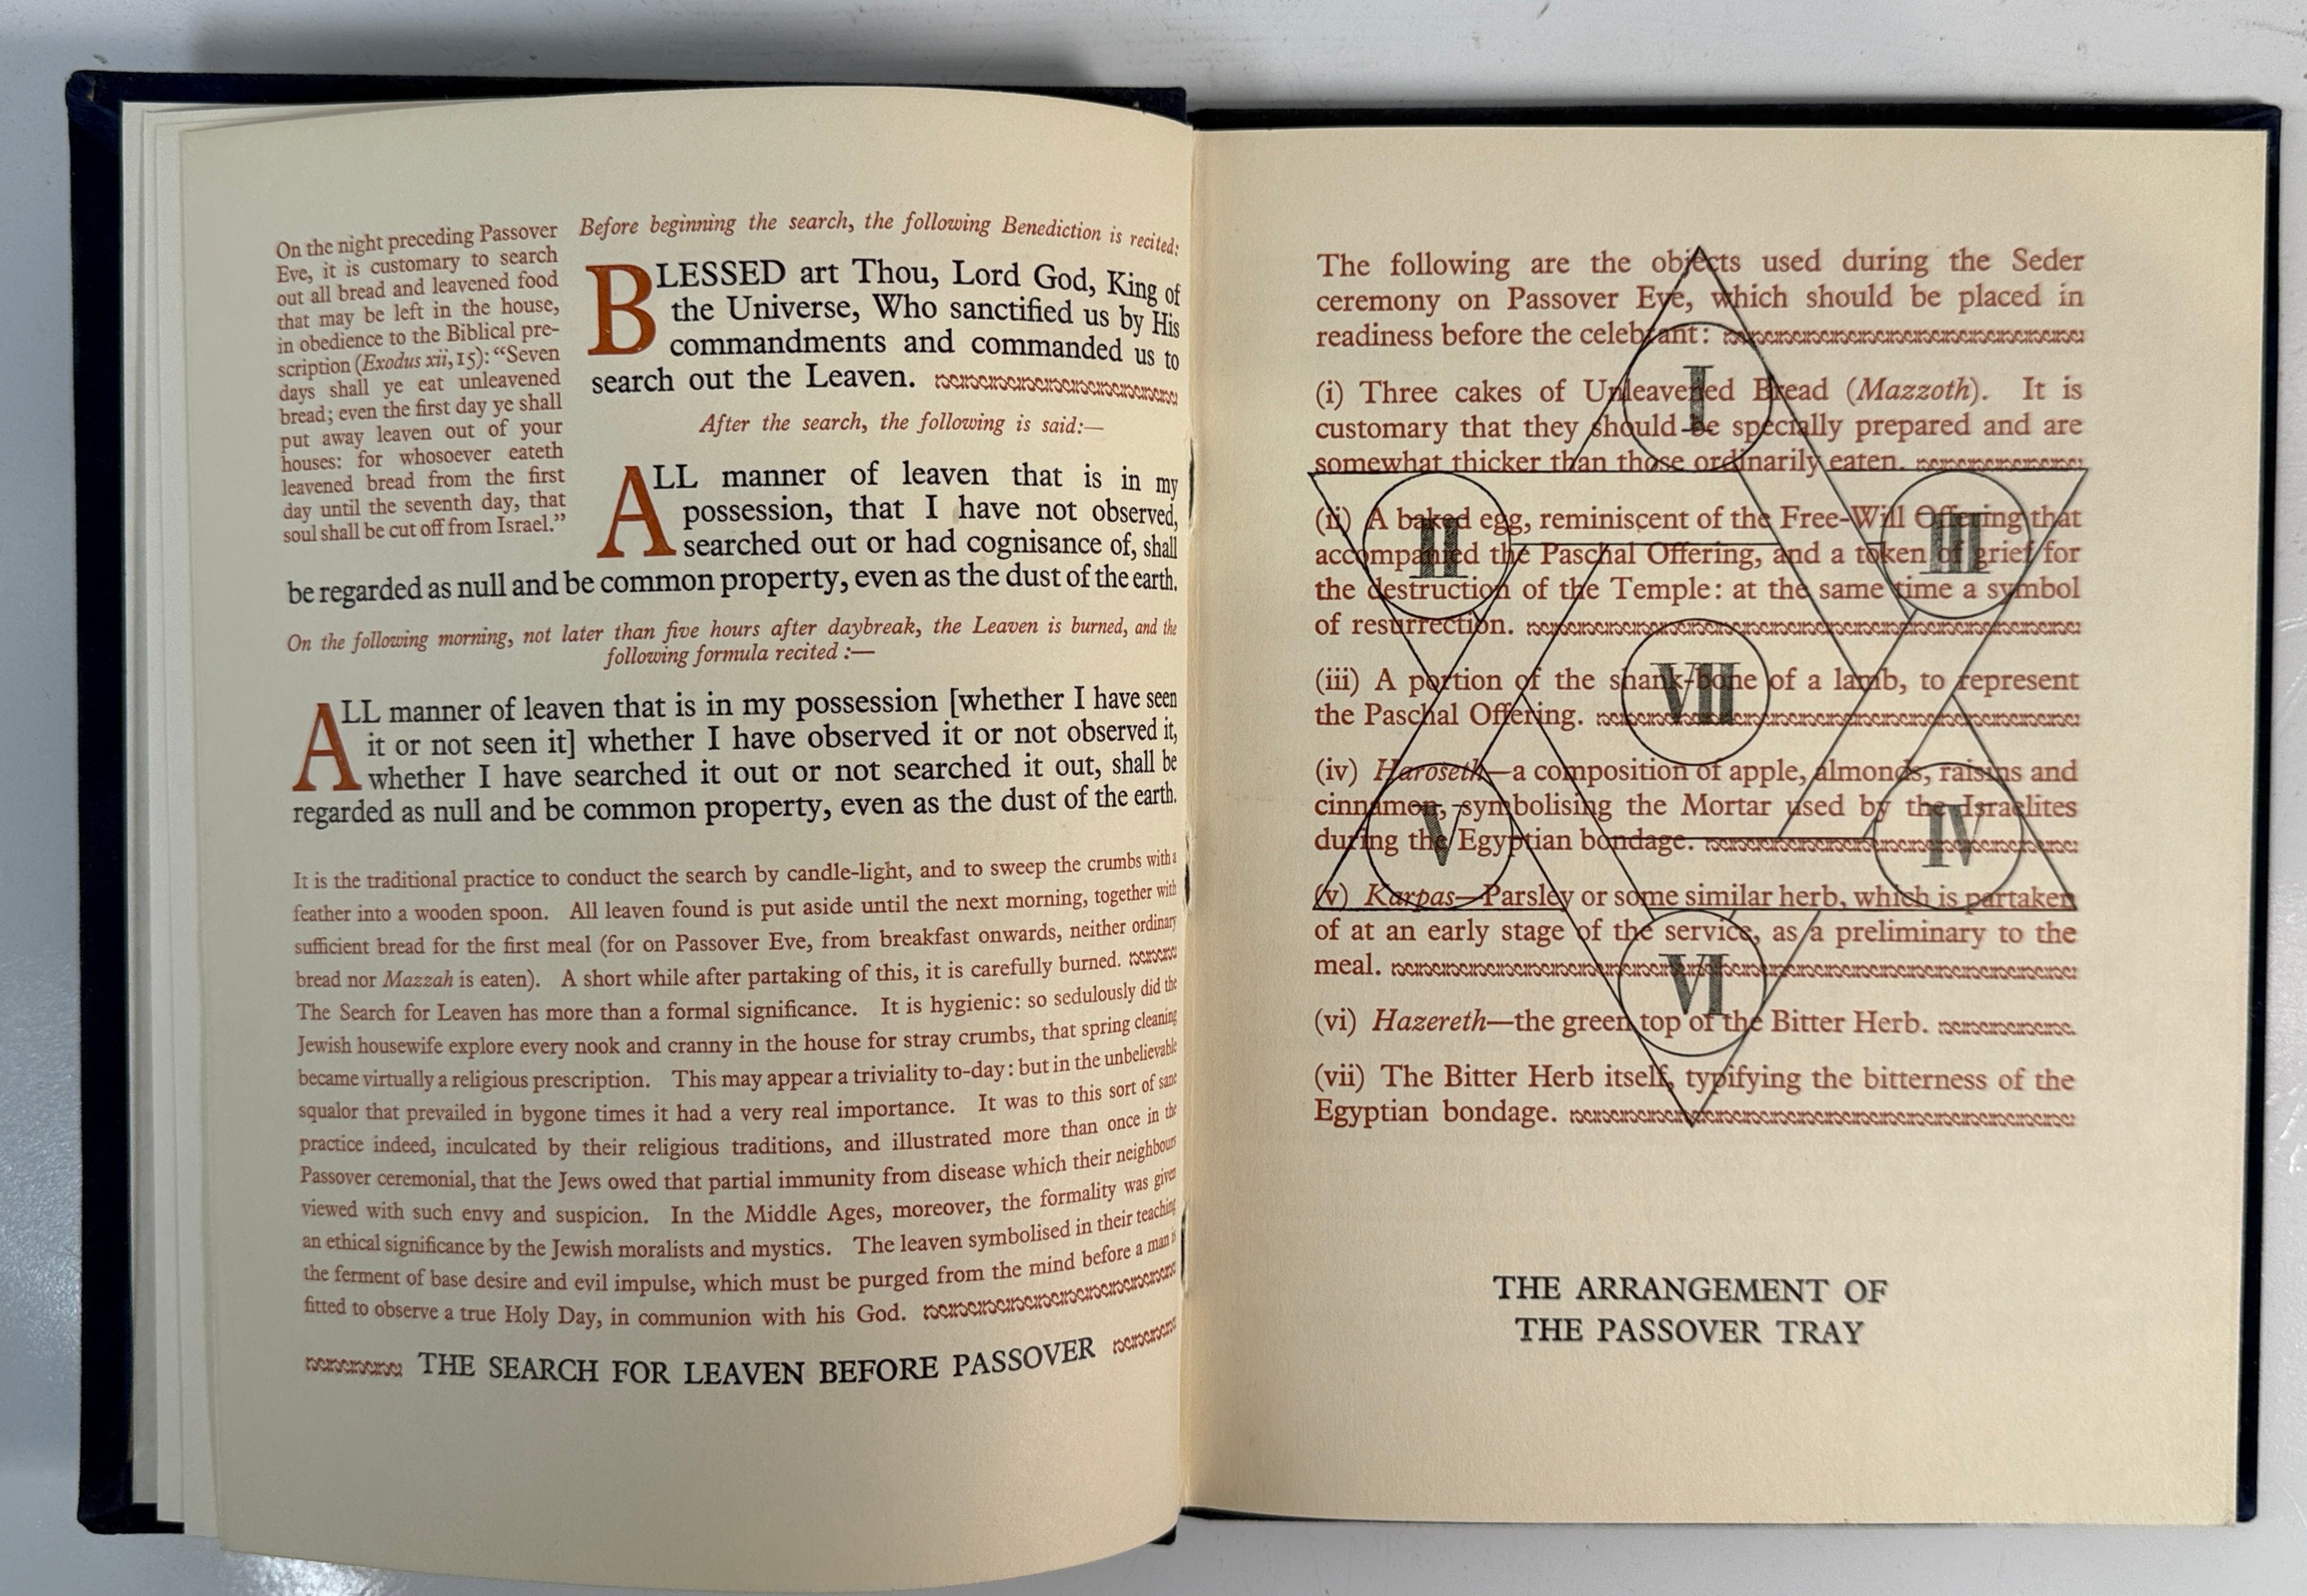 On the night preceding Passover
Eve, it is customary to search
out all bread and leavened food
that may be left in the house,
in obedience to the Biblical pre-
scription (Exodus xii, 15): “Seven
days shall ye eat unleavened
bread; even the first day ye shall
put away leaven out of your
houses: for whosoever eateth
leavened bread from the first
day until the seventh day, that
soul shall be cut off from Israel.”
Before beginning the search, the following Benediction is recited:
BLESSED art Thou, Lord God, King of
the Universe, Who sanctified us by His
commandments and commanded us to
search out the Leaven.
After the search, the following is said:—
ALL manner of leaven that is in my
possession, that I have not observed,
searched out or had cognisance of, shall
be regarded as null and be common property, even as the dust of the earth.
On the following morning, not later than five hours after daybreak, the Leaven is burned, and the
following formula recited :—
ALL manner of leaven that is in my possession [whether I have seen
it or not seen it] whether I have observed it or not observed it,
whether I have searched it out or not searched it out, shall be
regarded as null and be common property, even as the dust of the earth.
It is the traditional practice to conduct the search by candle-light, and to sweep the crumbs with a
feather into a wooden spoon. All leaven found is put aside until the next morning, together with
sufficient bread for the first meal (for on Passover Eve, from breakfast onwards, neither ordinary
bread nor Mazzah is eaten). A short while after partaking of this, it is carefully burned.
The Search for Leaven has more than a formal significance. It is hygienic: so sedulously did the
Jewish housewife explore every nook and cranny in the house for stray crumbs, that spring cleaning
became virtually a religious prescription. This may appear a triviality to-day: but in the unbelievable
squalor that prevailed in bygone times it had a very real importance. It was to this sort of sane
practice indeed, inculcated by their religious traditions, and illustrated more than once in the
Passover ceremonial, that the Jews owed that partial immunity from disease which their neighbours
viewed with such envy and suspicion. In the Middle Ages, moreover, the formality was given
an ethical significance by the Jewish moralists and mystics. The leaven symbolised in their teaching
the ferment of base desire and evil impulse, which must be purged from the mind before a man is
fitted to observe a true Holy Day, in communion with his God.
THE SEARCH FOR LEAVEN BEFORE PASSOVER
The following are the objects used during the Seder
ceremony on Passover Eve, which should be placed in
readiness before the celebrant:
I
(i) Three cakes of Unleavened Bread (Mazzoth). It is
customary that they should be specially prepared and are
somewhat thicker than those ordinarily eaten.
II
III
(ii) A baked egg, reminiscent of the Free-Will Offering that
accompanied the Paschal Offering, and a token of grief for
the destruction of the Temple: at the same time a symbol
of resurrection.
VII
(iii) A portion of the shank-bone of a lamb, to represent
the Paschal Offering.
(iv) Haroseth—a composition of apple, almonds, raisins and
cinnamon, symbolising the Mortar used by the Israelites
during the Egyptian bondage.
V
IV
(v) Karpas—Parsley or some similar herb, which is partaken
of at an early stage of the service, as a preliminary to the
meal.
VI
(vi) Hazereth—the green top of the Bitter Herb.
(vii) The Bitter Herb itself, typifying the bitterness of the
Egyptian bondage.
THE ARRANGEMENT OF
THE PASSOVER TRAY